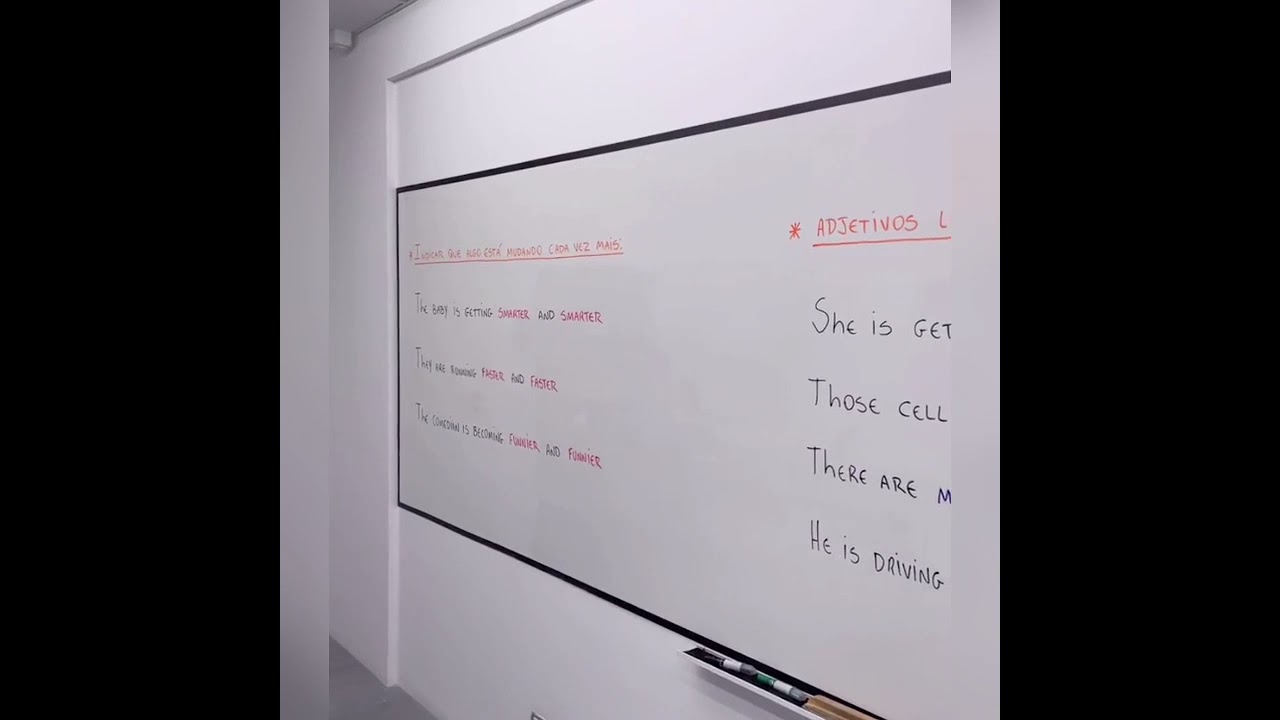 * INDICAR QUE ALGO ESTÁ MUDANDO CADA VEZ MAIS:
THE BABY IS GETTING SMARTER AND SMARTER
THEY ARE RUNNING FASTER AND FASTER
THE COMEDIAN IS BECOMING FUNNIER AND FUNNIER
* ADJETIVOS L
SHE IS GET
THOSE CELL
THERE ARE M
HE IS DRIVING